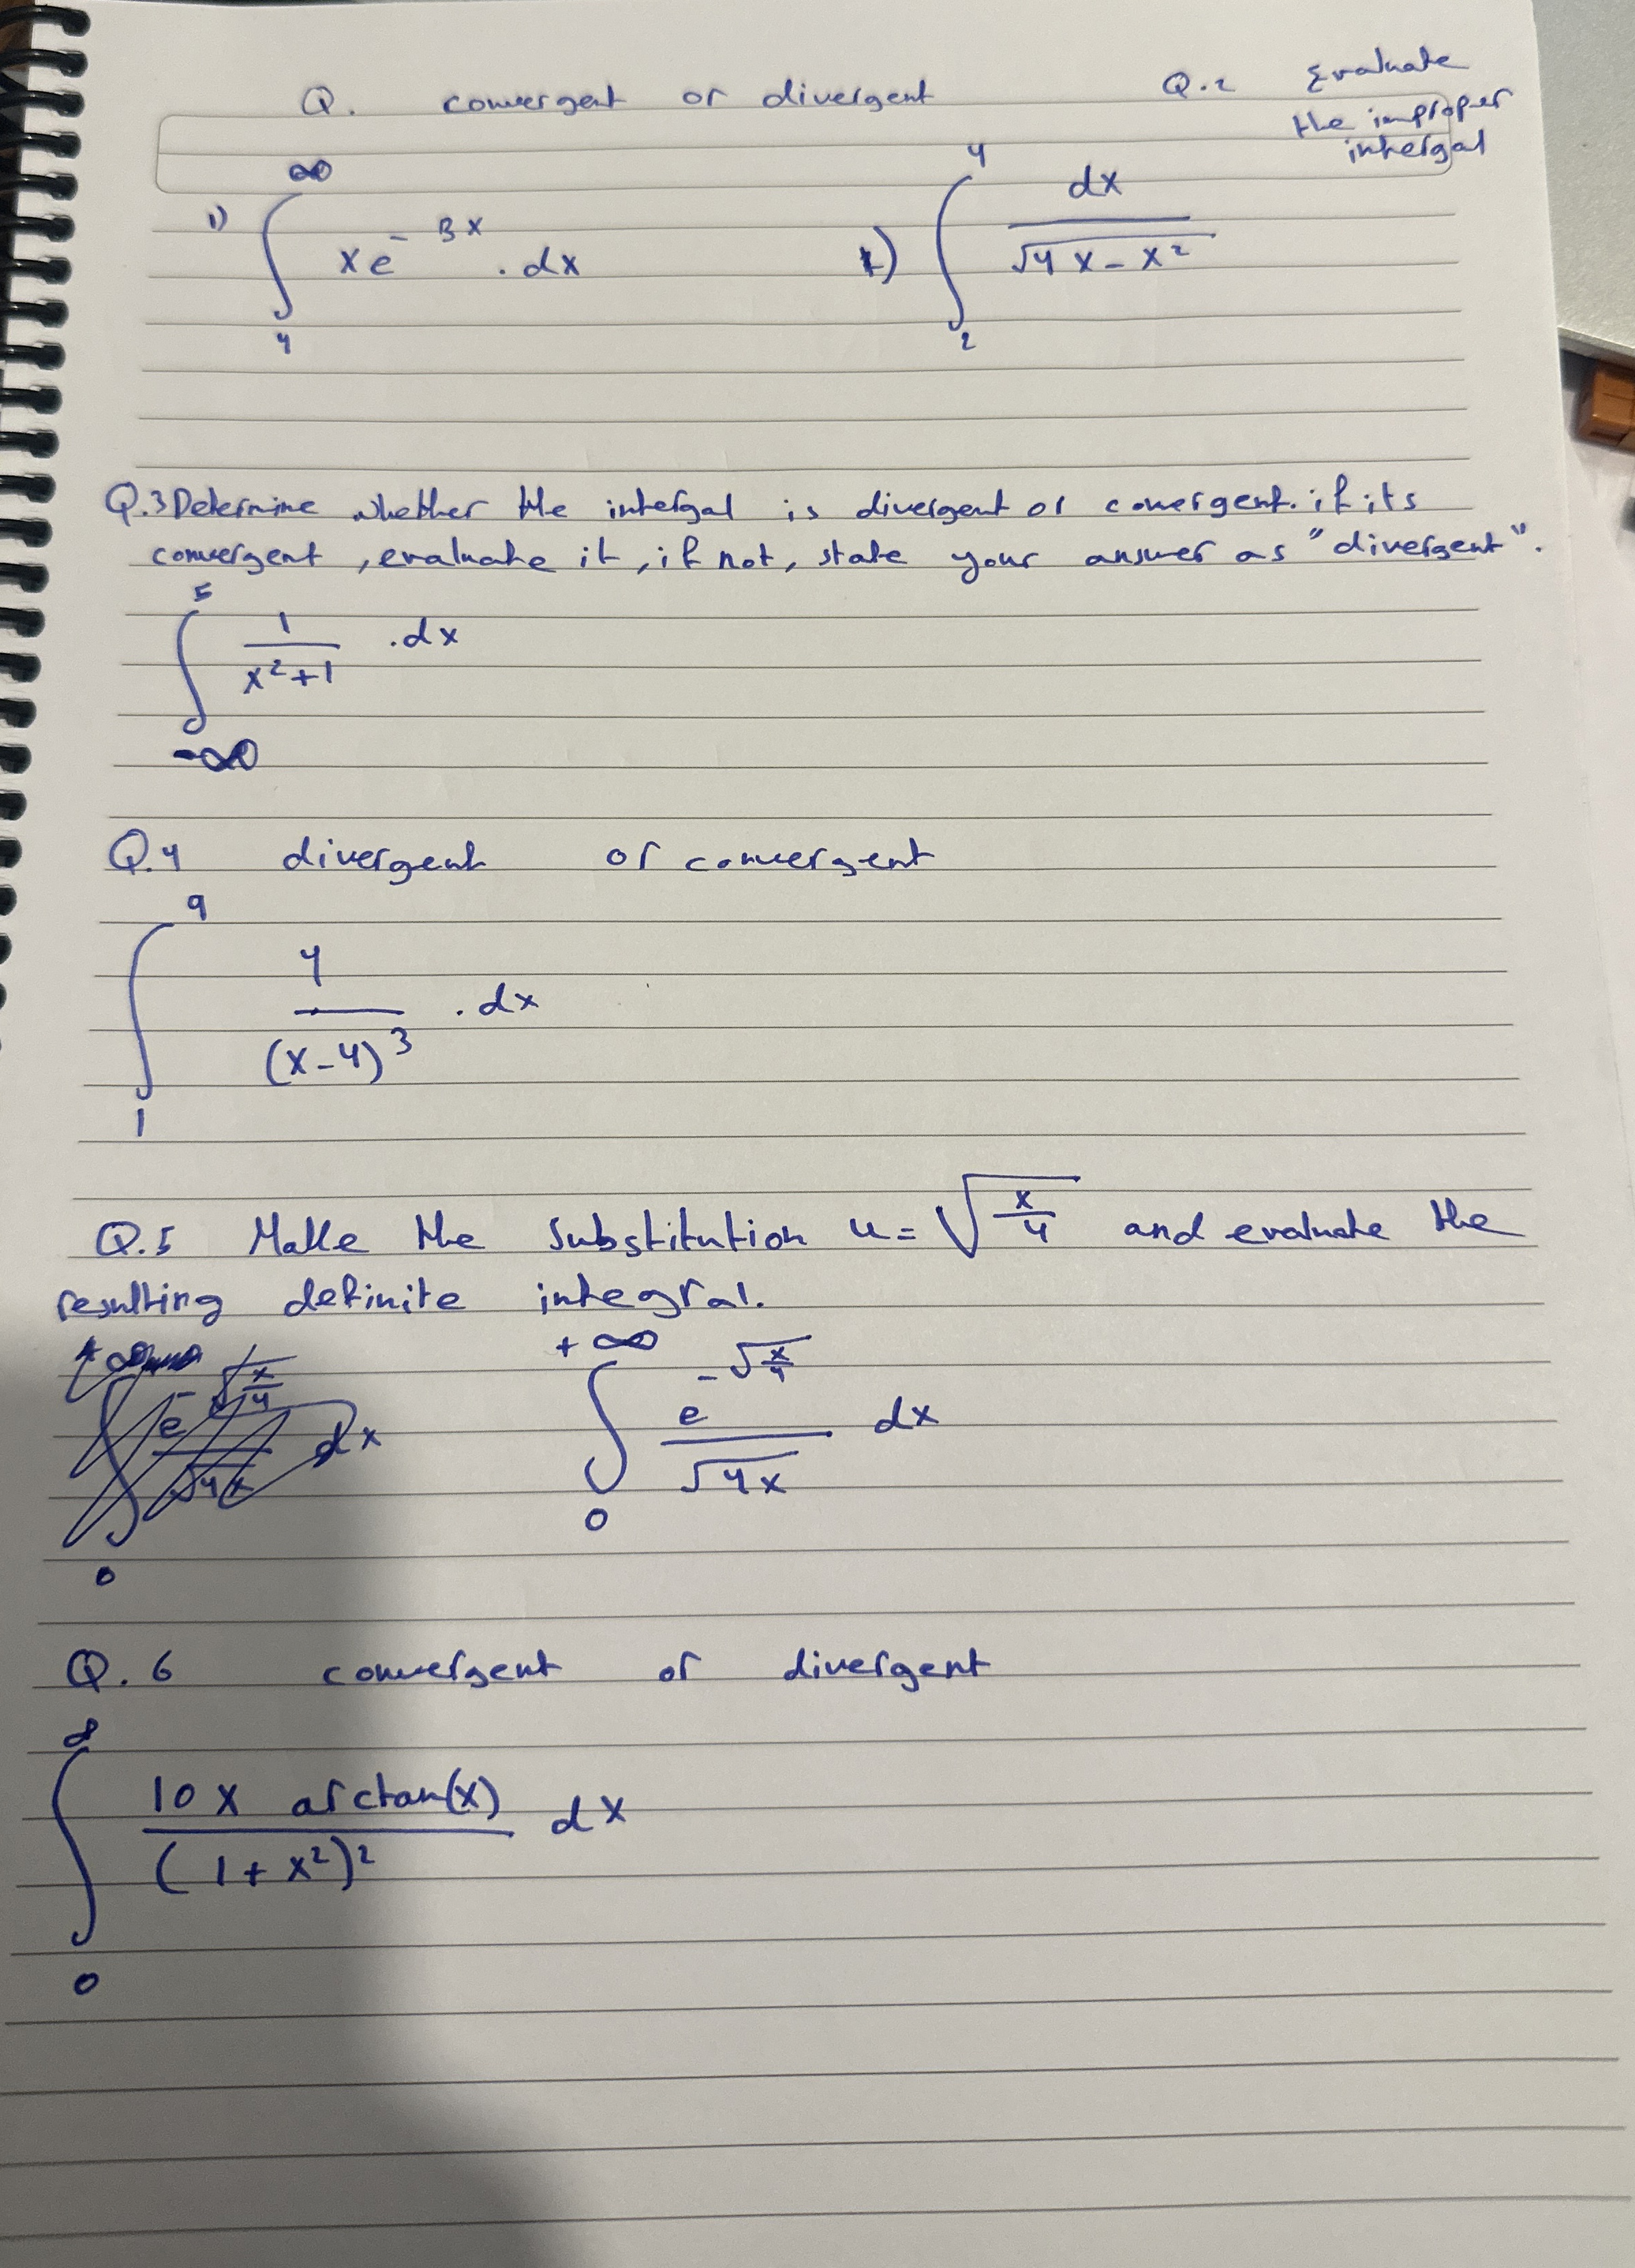 Q. convergent or divergent
Q.2 Evaluate
the improper
intergal
1) ∫₄^∞ xe^(-3x) . dx
1) ∫₂^4 dx / √(4x-x²)
Q.3 Determine whether the intergal is divergent or convergent. if its
convergent, evaluate it, if not, state your answer as "divergent".
∫_(-∞)^5 1/(x²+1) .dx
Q.4 divergent or convergent
∫₁^9 4/(x-4)³ . dx
Q.5 Make the substitution u = √(x/4) and evaluate the
resulting definite integral.
∫₀^(+∞) e^(-√(x/4)) / √(4x) dx
Q.6 convergent or divergent
∫₀^∞ 10x arctan(x) / (1+x²)² dx